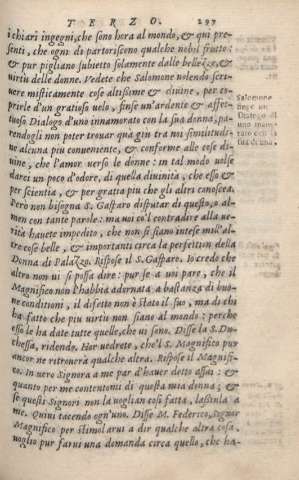 TERZO. 297
i chiari ingegni, che sono hora al mondo, & qui pre-
senti, che ogni dì partoriscono qualche nobil frutto:
& pur pigliano subietto solamente dalle bellezze, &
virtù delle donne. Vedete che Salomone volendo scri-
vere misticamente cose altissime & divine, per co-
prirle d'un gratioso velo, finse un'ardente & affet-
tuoso Dialogo d'uno innamorato con la sua donna, pa-
rendogli non poter trovar qua giu tra noi similitudi-
ne alcuna piu conveniente, & conforme alle cose di-
vine, che l'amor verso le donne: in tal modo volse
darci un poco d'odore, di quella divinità, che esso &
per scientia, & per gratia piu che gli altri conoscea.
Però non bisogna S. Gasparo disputar di questo, o al-
men con tante parole: ma voi co'l contradire alla ve-
rità havete impedito, che non si siano intese mill'al-
tre cose belle, & importanti circa la perfettion della
Donna di Palazzo. Rispose il S. Gasparo. Io credo che
altro non vi si possa dire: pur se a voi pare, che il
Magnifico non l'habbia adornata a bastanza di buo-
ne conditioni, il difetto non è stato il suo, ma di chi
ha fatto che piu virtù non siano al mondo: perche
esso le ha date tutte quelle, che vi sono. Disse la S. Du-
chessa, ridendo. Hor vedrete, che'l S. Magnifico pur
ancor ne retroverà qualche altra. Rispose il Magnifi-
co. In vero Signora a me par d'haver detto assai: &
quanto per me contentomi di questa mia donna; &
se questi Signori non la voglian così fatta, lassinla a
me. Quivi tacendo ogn'uno. Disse M. Federico, Signor
Magnifico per stimolarvi a dir qualche altra cosa,
voglio pur farvi una domanda circa quello, che ha-
Salomone